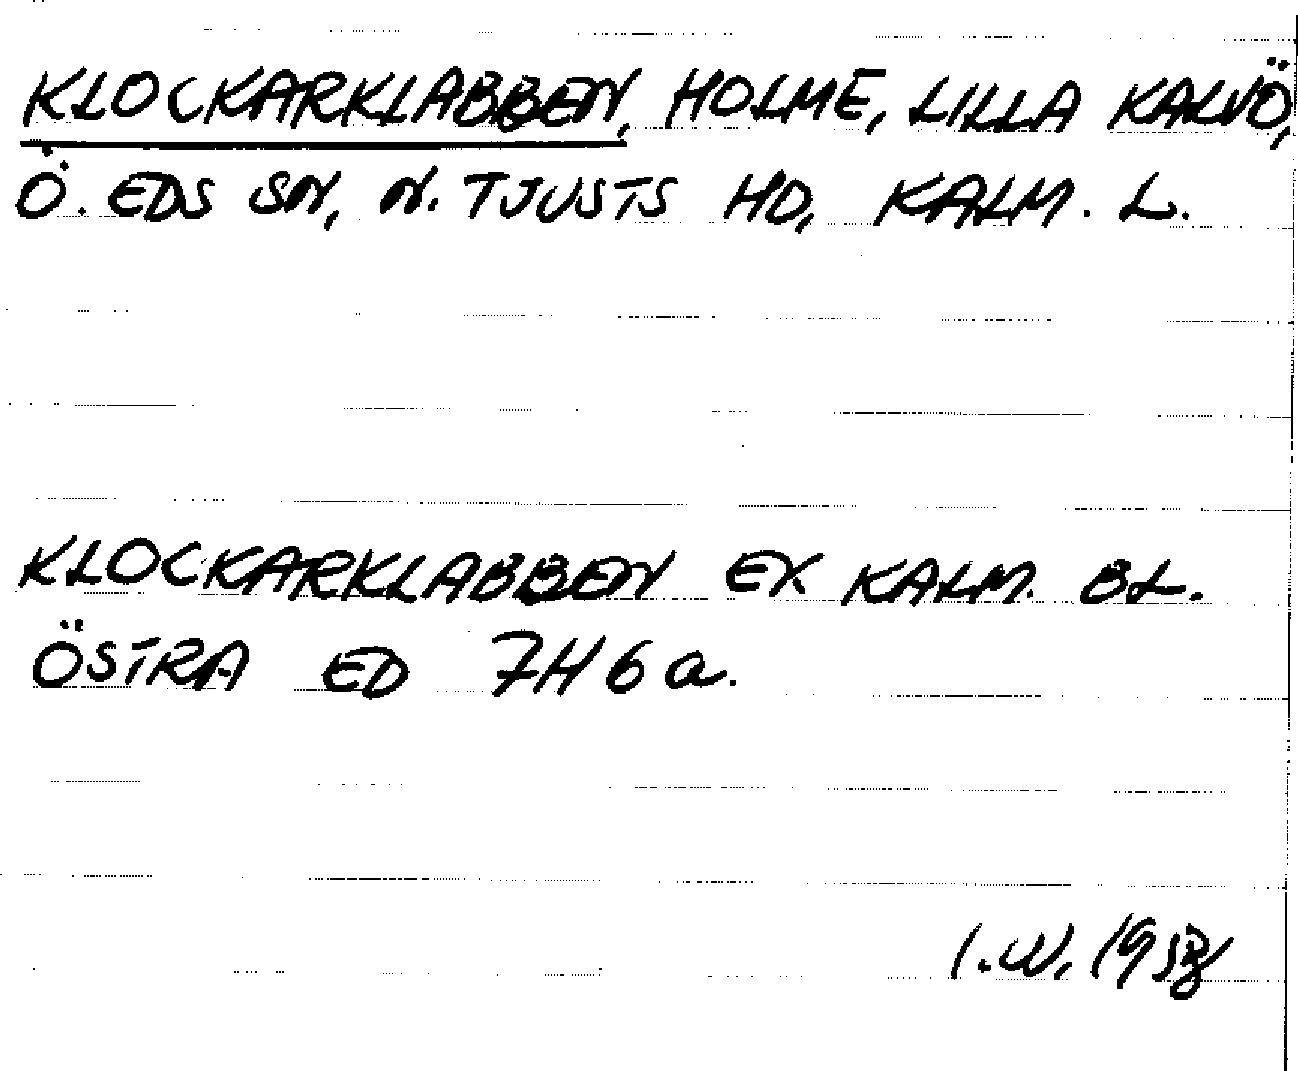 KLOCKARKLABBEN, HOLME, LILLA KALVÖ,
Ö. EDS SN, N. TJUSTS HD, KALM. L.
KLOCKARKLABBEN EK KALM. BL.
ÖSTRA ED 7H6a.
I.W.